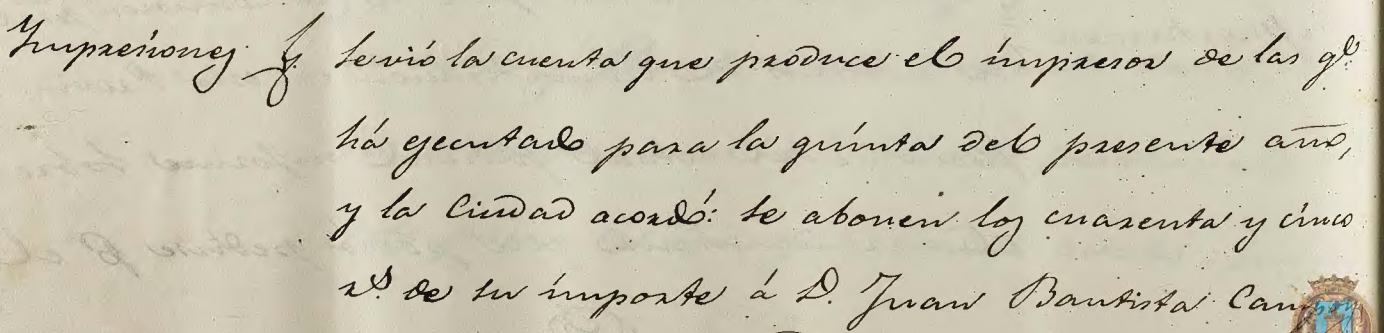 Impresiones
Se vió la cuenta que produce el impresor de las qe.
há ejecutado para la quinta del presente año,
y la Ciudad acordó: se abonen los cuarenta y cinco
rs. de su importe á D. Juan Bautista